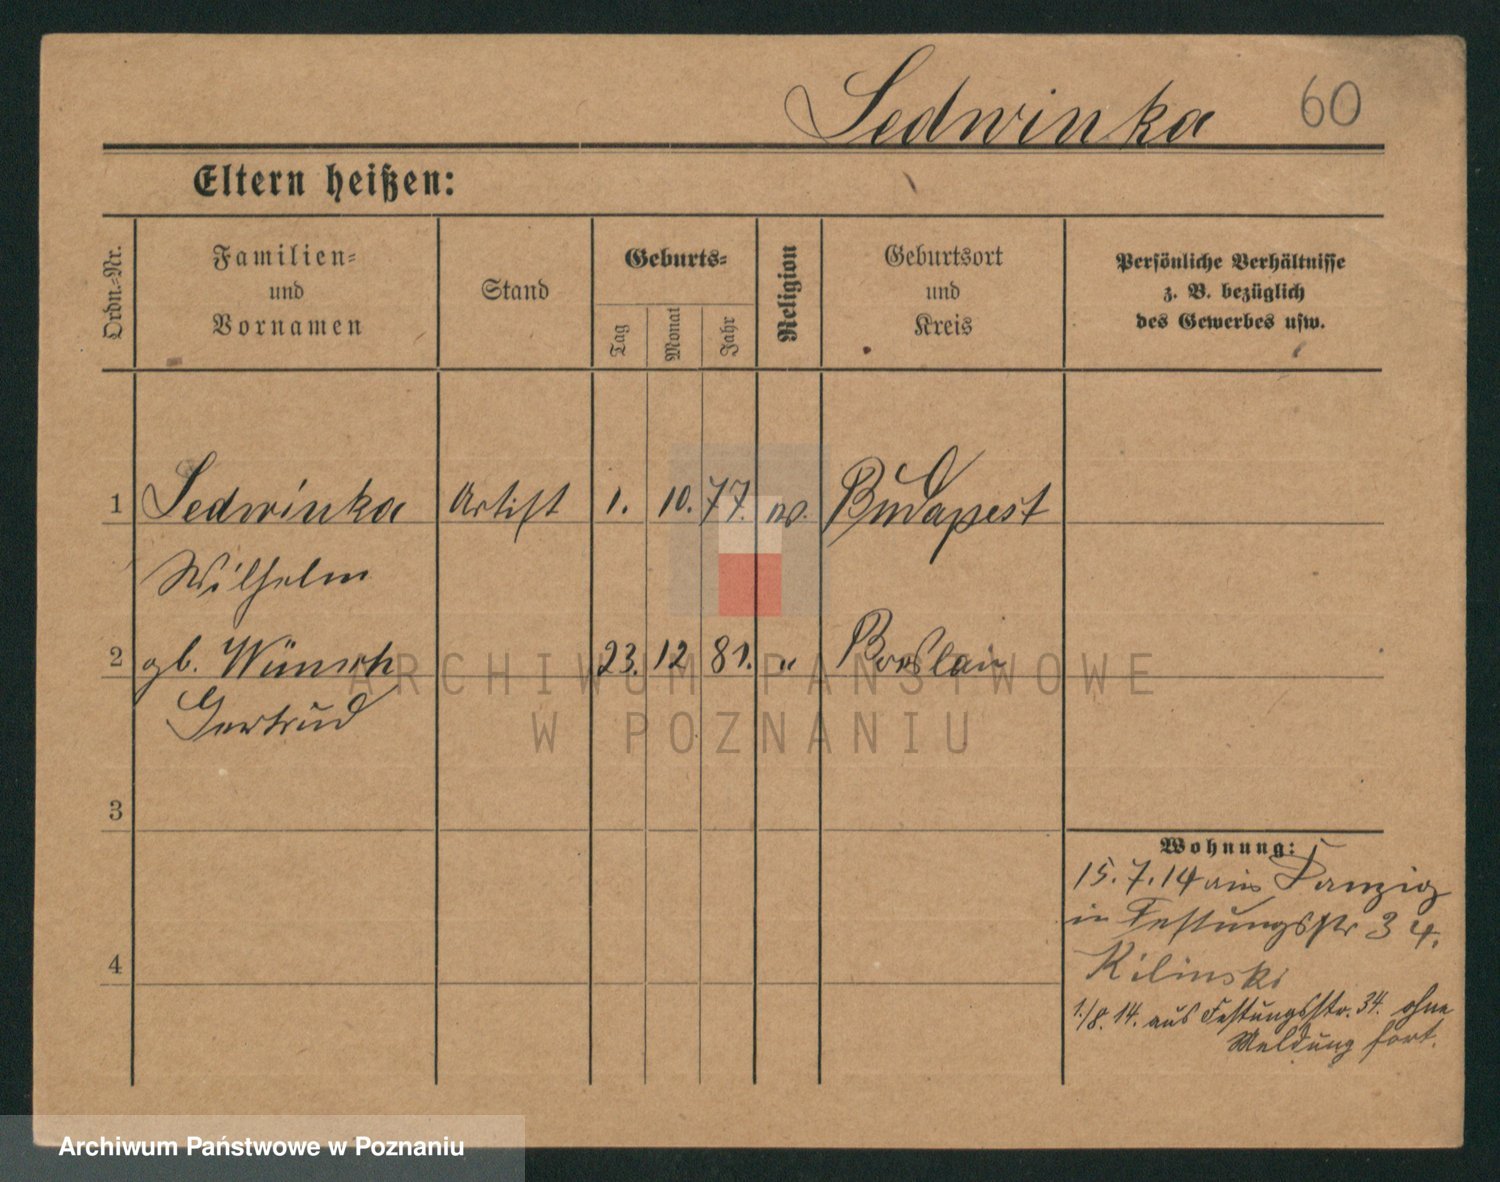 Sedwinka 60
Eltern heißen:
Ordn.-Nr.
Familien-
und
Vornamen
Stand
Geburts-
Tag
Monat
Jahr
Religion
Geburtsort
und
Kreis
Persönliche Verhältnisse
z. B. bezüglich
des Gewerbes usw.
1 Sedwinka Artist 1. 10. 77. Budapest
Wilhelm
2 gb. Wünsch 23. 12 81. " Breslau
Gertrud
3
4
Wohnung:
15.7.14 aus Danzig
in Festungsstr 34.
Kilinski
1./8. 14. aus Festungsstr. 34. ohne
Meldung fort.
ARCHIWUM PAŃSTWOWE
W POZNANIU
Archiwum Państwowe w Poznaniu